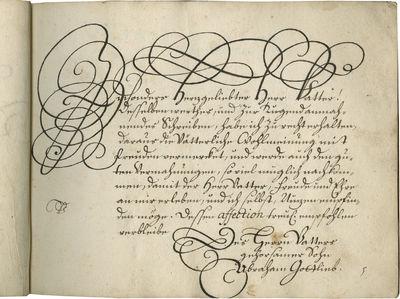 Besonders Hertzgeliebter Herr Vatter!
Desselben werthes, und zur Tugend anmah-
nendes Schreiben, habe ich zu recht erhalten,
daraus die Vätterliche Wohlmeinung mit
Freuden vermerket, und werde auch den gu-
ten Vermahnungen, so viel müglich nachkom-
men, damit der Herr Vatter, Freude und Ehre
an mir erleben, und ich selbst, Nutzen empfin-
den möge. Dessen affection treul: empfohlen
verbleibe
Des Herrn Vatters
gehorsamer Sohn
Abraham Gottlieb.
5